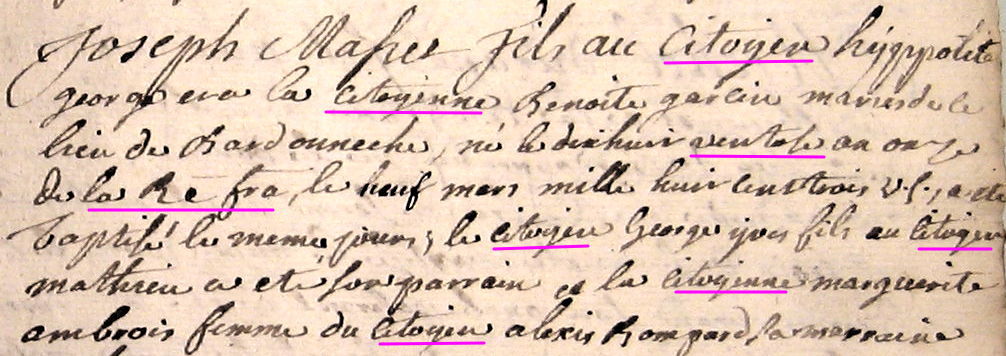 Joseph Mafieu fils au Citoyen hÿppolite
george et a la citoyenne Benoite garcin mariés de ce
lieu de Bardonneche, né le dixhuit ventose an onze
de la Re fra, le neuf mars mille huit cent trois v.s., a été
baptisé le meme jours; le citoyen George yves fils au citoyen
mathieu a eté son parrain et la citoyenne marguerite
ambrois femme du citoyen alexis Rompard, la marraine